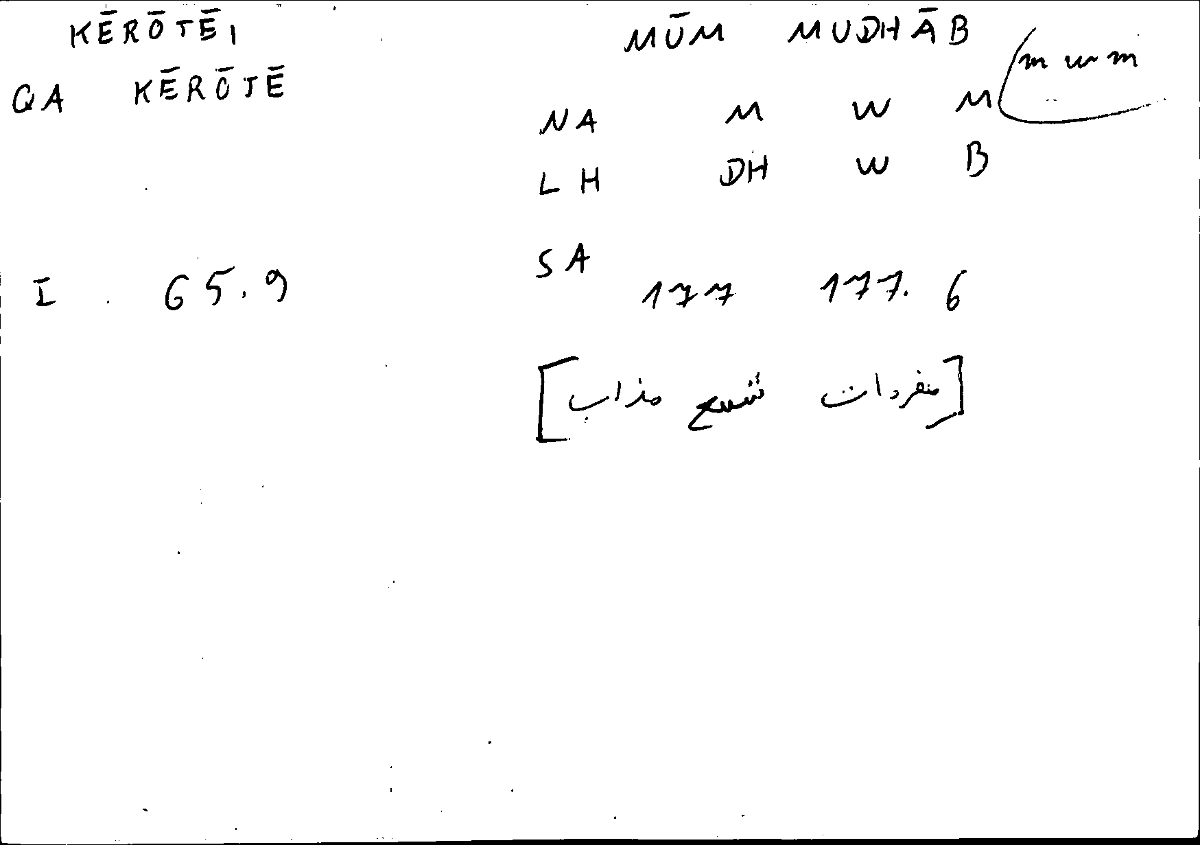 KĒRŌTĒI
QA KĒRŌTĒ
MŪM MUDHĀB
(m w m
NA M W M
LH DH W B
SA
I 65.9
177 177.6
[مفردات شمع مذاب]